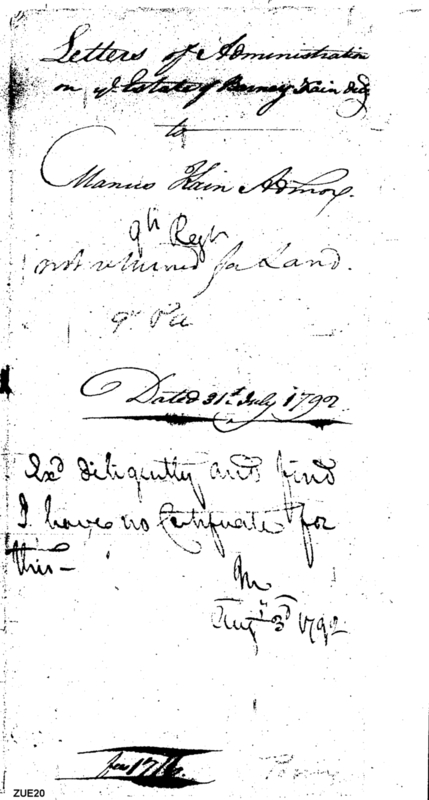 Letters of Administration
on ye Estate of Barney Kain decd
to
Manus Kain Admor.
9th Regt
not returned for Land.
9th Pa
Dated 31st July 1792
Exd diligently and find
I have no Certificate for
this—
M
Augt 3d 1792
ZUE20